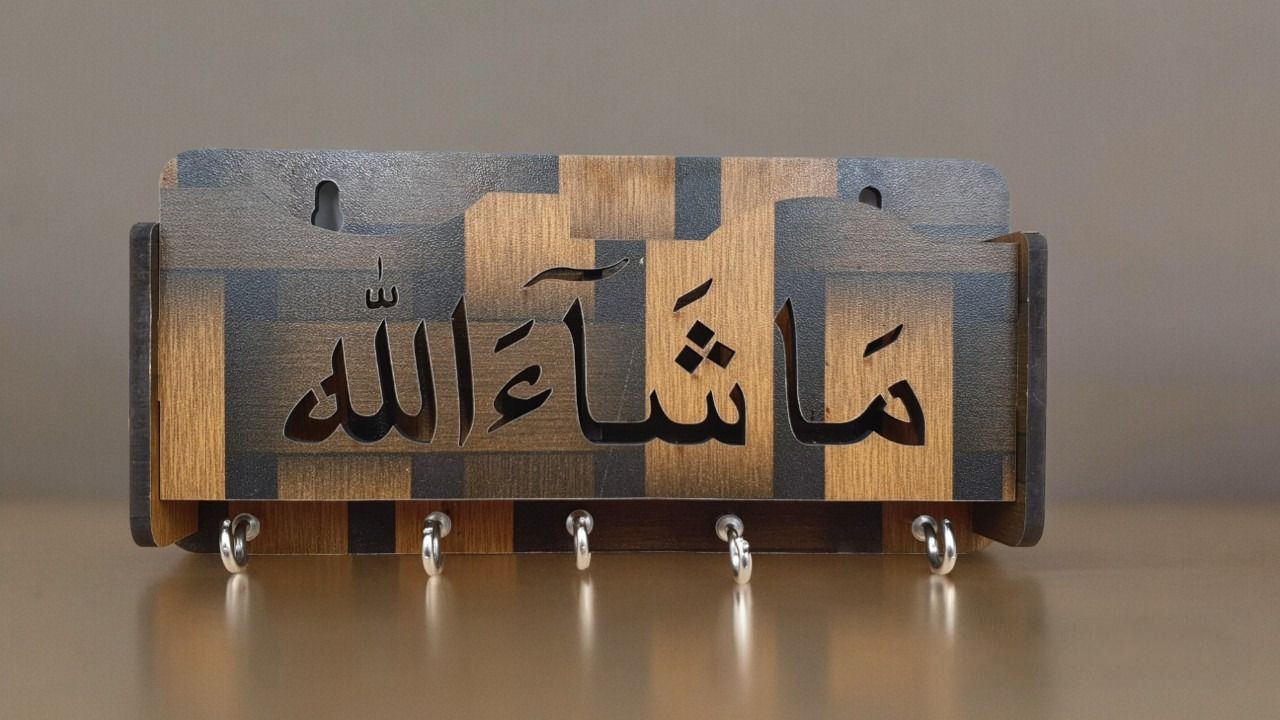 مَا شَآءَ اللّٰه